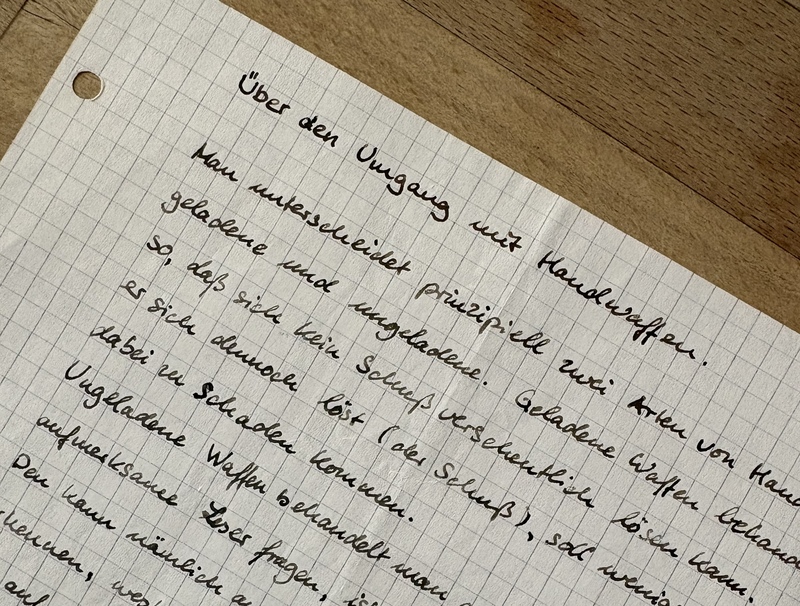 Über den Umgang mit Handwaffen.
Man unterscheidet prinzipiell zwei Arten von Hand
geladene und ungeladene. Geladene Waffen behand
so, daß sich kein Schuß versehentlich lösen kann.
es sich dennoch löst (der Schuß), soll wenig
dabei zu Schaden kommen.
Ungeladene Waffen behandelt man
aufmerksame Leser fragen, is
Den kann nämlich
kennen, we
auf